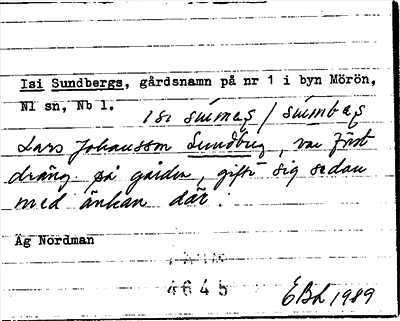 Isi Sundbergs, gårdsnamn på nr 1 i byn Mörön,
Nl sn, Nb l.
isi
Lars Johansson Sundberg, var först
dräng på gården, gifte sig sedan
med änkan där.
Äg Nordman
4645
EBd 1989